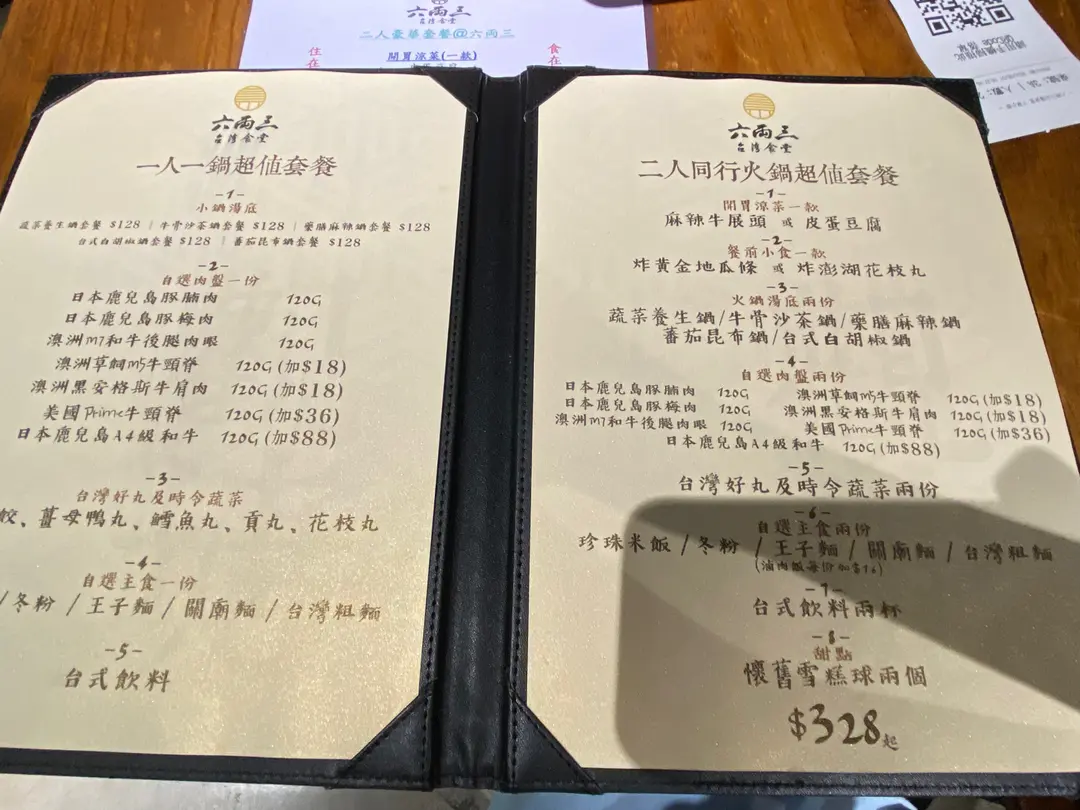 六両三
台灣食堂
二人豪華套餐@六両三
住在
開胃涼菜(一款)
食在
六両三
台灣食堂
一人一鍋超值套餐
-1-
小鍋湯底
蔬菜養生鍋套餐 $128 | 牛骨沙茶鍋套餐 $128 | 藥膳麻辣鍋套餐 $128
台式白胡椒鍋套餐 $128 | 蕃茄昆布鍋套餐 $128
-2-
自選肉盤一份
日本鹿兒島豚腩肉 120G
日本鹿兒島豚梅肉 120G
澳洲m7和牛後腿肉眼 120G
澳洲草飼m5牛頸脊 120G (加$18)
澳洲黑安格斯牛肩肉 120G (加$18)
美國Prime牛頸脊 120G (加$36)
日本鹿兒島A4級和牛 120G (加$88)
-3-
台灣好丸及時令蔬菜
餃、薑母鴨丸、鱈魚丸、貢丸、花枝丸
-4-
自選主食一份
/冬粉 / 王子麵 / 關廟麵 / 台灣粗麵
-5-
台式飲料
六両三
台灣食堂
二人同行火鍋超值套餐
-1-
開胃涼菜一款
麻辣牛展頭 或 皮蛋豆腐
-2-
餐前小食一款
炸黃金地瓜條 或 炸澎湖花枝丸
-3-
火鍋湯底兩份
蔬菜養生鍋/牛骨沙茶鍋/藥膳麻辣鍋
蕃茄昆布鍋/台式白胡椒鍋
-4-
自選肉盤兩份
日本鹿兒島豚腩肉 120G 澳洲草飼m5牛頸脊 120G (加$18)
日本鹿兒島豚梅肉 120G 澳洲黑安格斯牛肩肉 120G (加$18)
澳洲m7和牛後腿肉眼 120G 美國Prime牛頸脊 120G (加$36)
日本鹿兒島A4級和牛 120G (加$88)
-5-
台灣好丸及時令蔬菜兩份
-6-
自選主食兩份
珍珠米飯 / 冬粉 / 王子麵 / 關廟麵 / 台灣粗麵
(滷肉飯每份加$16)
-7-
台式飲料兩杯
-8-
甜點
懷舊雪糕球兩個
$328起